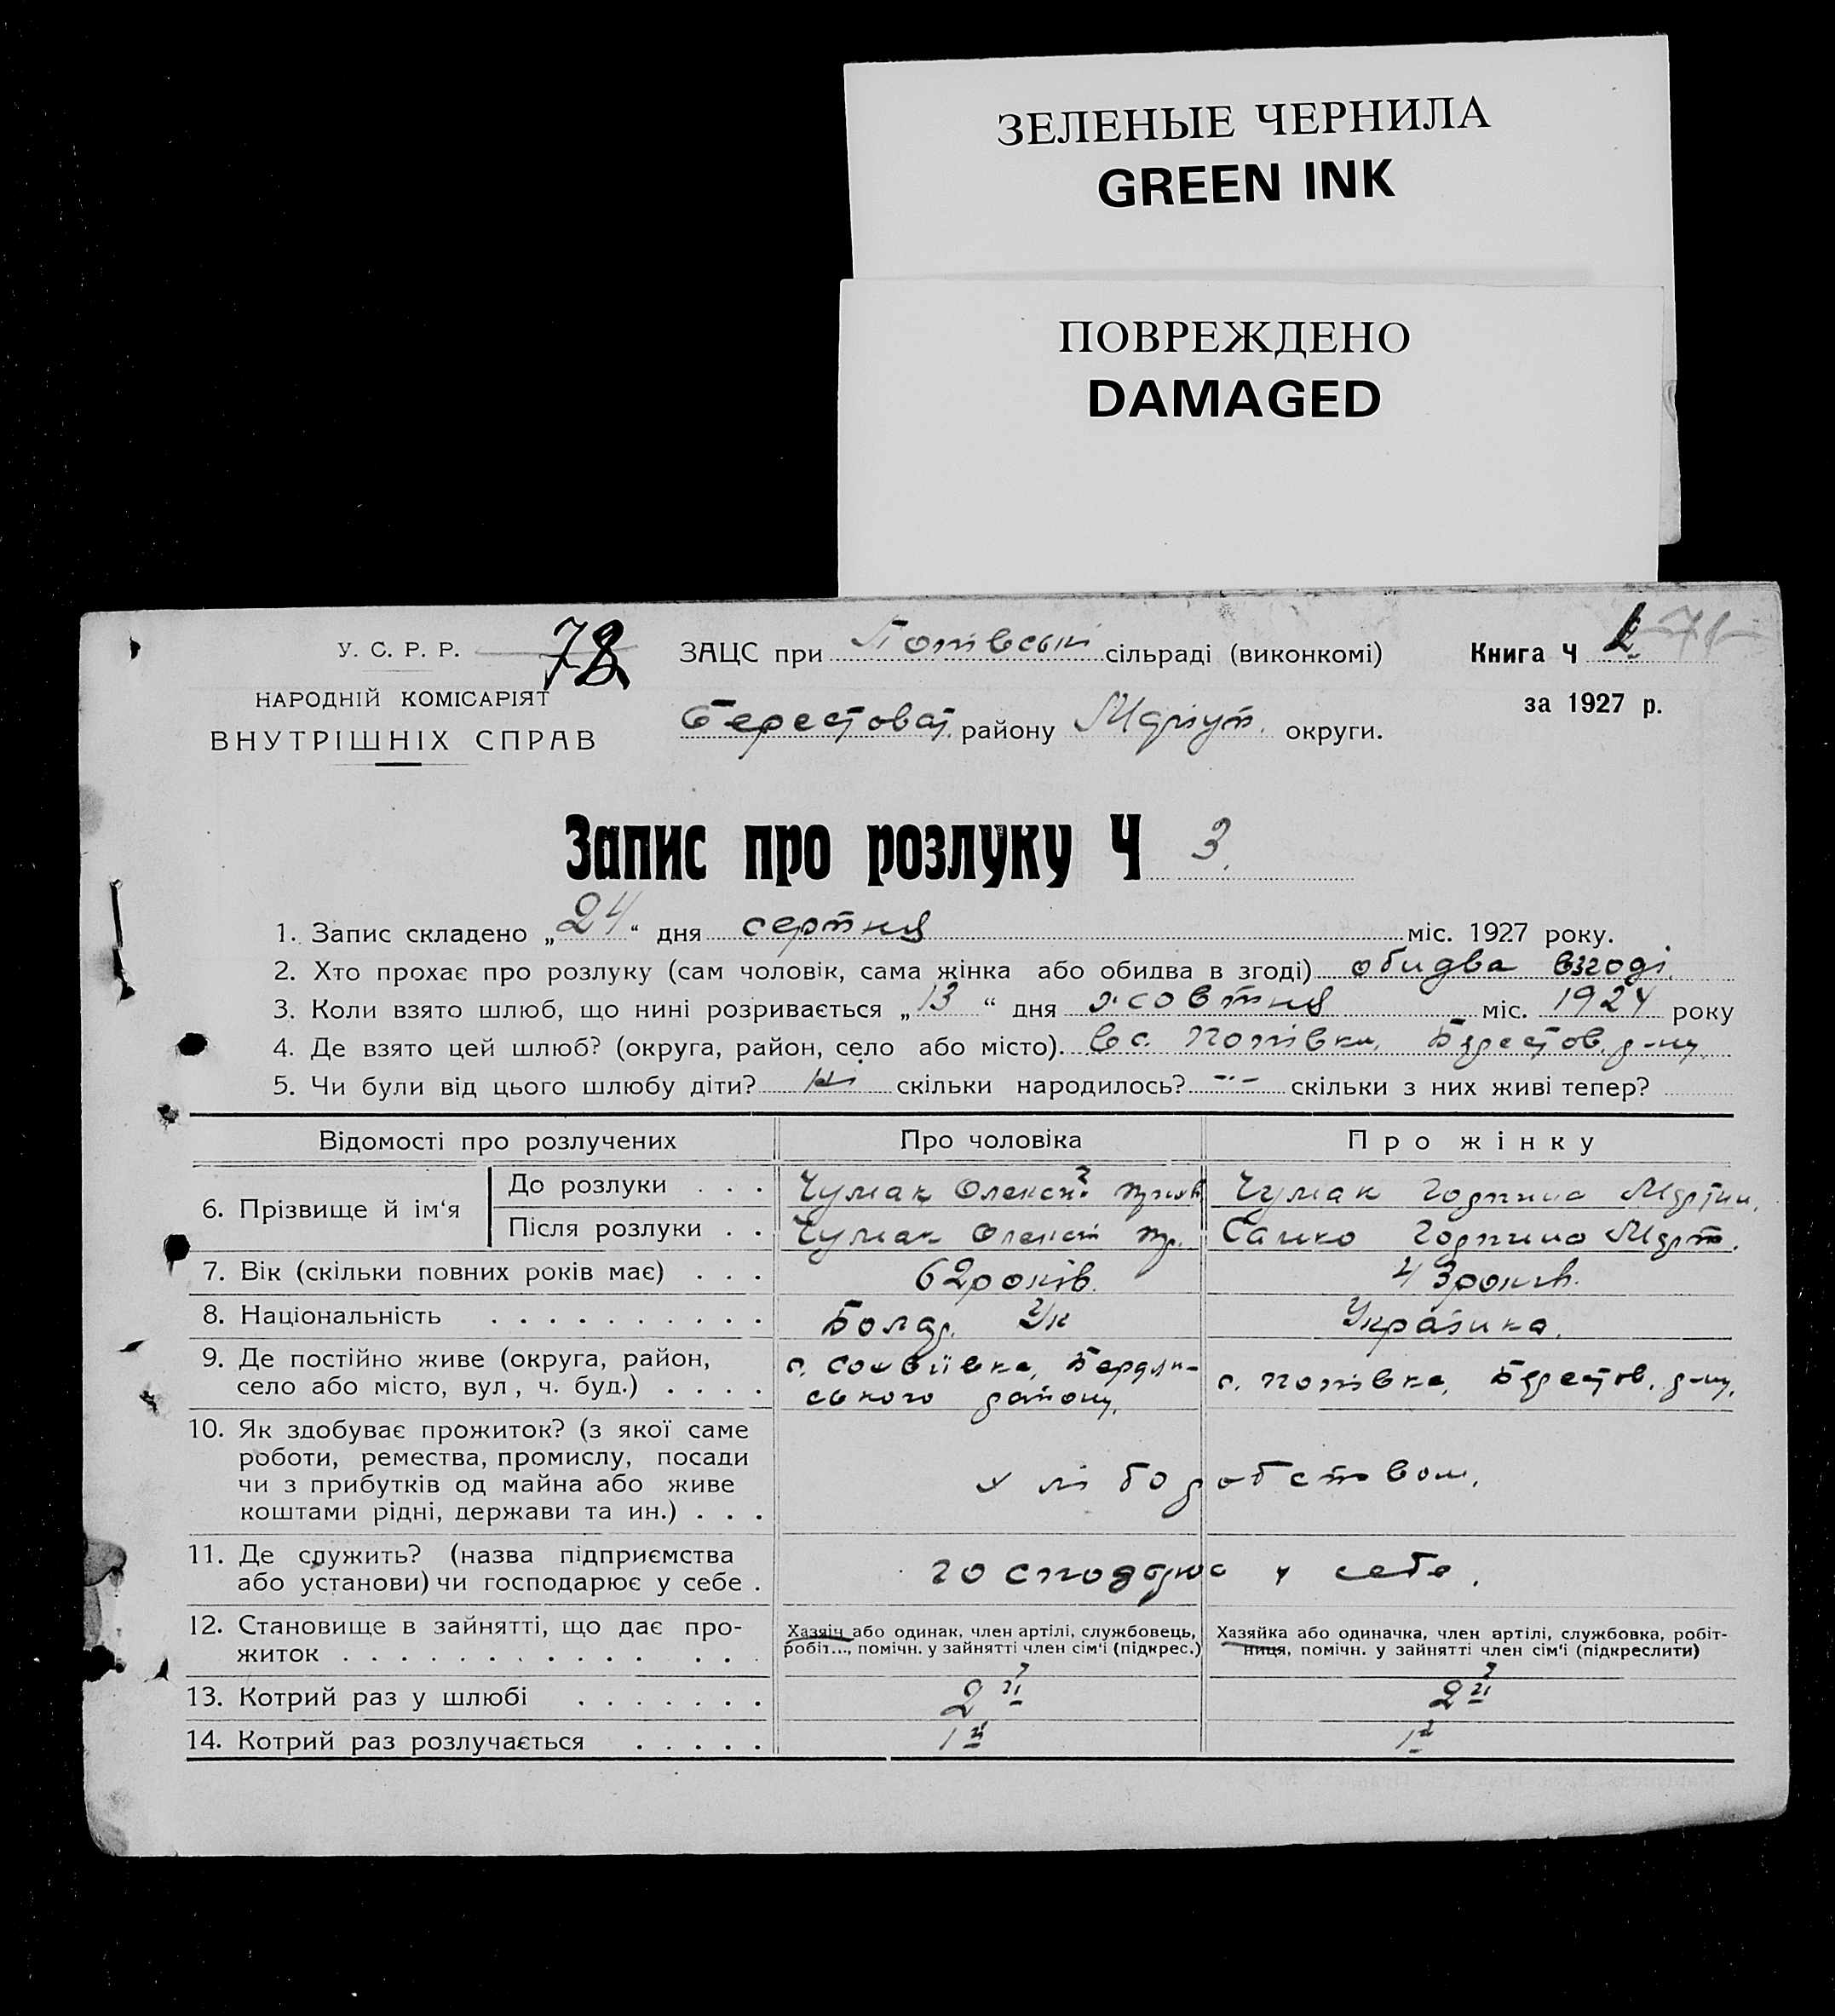 ЗЕЛЕНЫЕ ЧЕРНИЛА
GREEN INK
ПОВРЕЖДЕНО
DAMAGED
У. С. Р. Р. ЗАЦС при Попівські сільраді (виконкомі) Книга Ч 71
НАРОДНІЙ КОМІСАРІЯТ за 1927 р.
ВНУТРІШНІХ СПРАВ Берестоват. району Маріуп. округи.
Запис про розлуку Ч 3.
1. Запис складено „24“ дня серпня міс. 1927 року.
2. Хто прохає про розлуку (сам чоловік, сама жінка або обидва в згоді) обидва взгоді.
3. Коли взято шлюб, що нині розривається „13“ дня жовтня міс. 1924 року
4. Де взято цей шлюб? (округа, район, село або місто). в с. Попівки, Берестов. р-ну
5. Чи були від цього шлюбу діти? ні скільки народилось? -·- скільки з них живі тепер?
Відомості про розлучених Про чоловіка Про жінку
6. Прізвище й ім'я До розлуки . . . Чумак Олексій Чумак Мартин.
Після розлуки . . Чумак Олексій Самко Март.
7. Вік (скільки повних років має) . . . 62 років. 43 років.
8. Національність . . . . . . . . . . Болгар. Ук Українка.
9. Де постійно живе (округа, район, с. Софіївка, Бердян-
село або місто, вул, ч. буд.) . . . . ського району. с. Попівка, Берестов. р-ну.
10. Як здобуває прожиток? (з якої саме
роботи, ремества, промислу, посади
чи з прибутків од майна або живе хліборобством.
коштами рідні, держави та ин.) . . .
11. Де служить? (назва підприємства
або установи) чи господарює у себе . господарює у себе.
12. Становище в зайнятті, що дає про- Хазяін або одинак, член артілі, службовець, Хазяйка або одиначка, член артілі, службовка, робіт-
житок . . . . . . . . . . . . . робіт..., помічн. у зайнятті член сім'і (підкрес.) ниця, помічн. у зайнятті член сім'і (підкреслити)
13. Котрий раз у шлюбі . . . . . . . 2й 2й
14. Котрий раз розлучається . . . . . 1й 1й